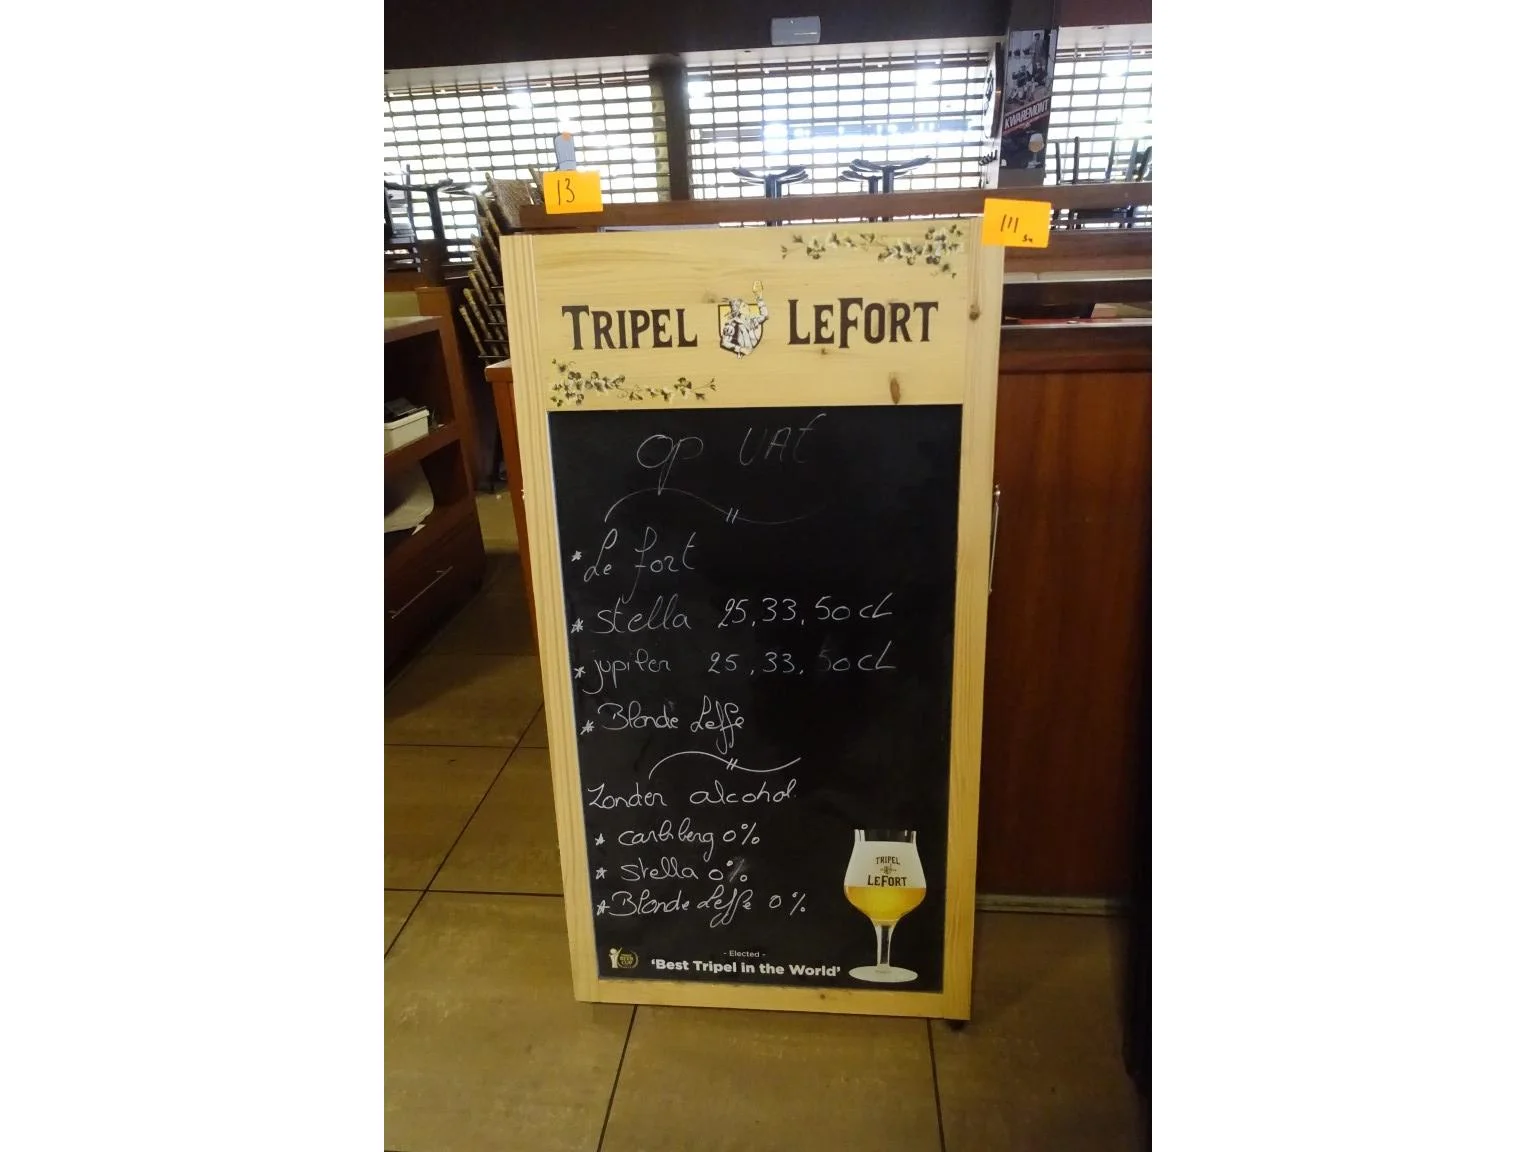 KWAREMONT
13
111
TRIPEL LEFORT
op VAT
* Le fort
* stella 25, 33, 50 cL
* jupiler 25, 33, 50 cL
* Blonde Leffe
Zonder alcohol.
* carlsberg 0%
* stella 0%
* Blonde Leffe 0%
TRIPEL
LEFORT
- Elected -
'Best Tripel in the World'